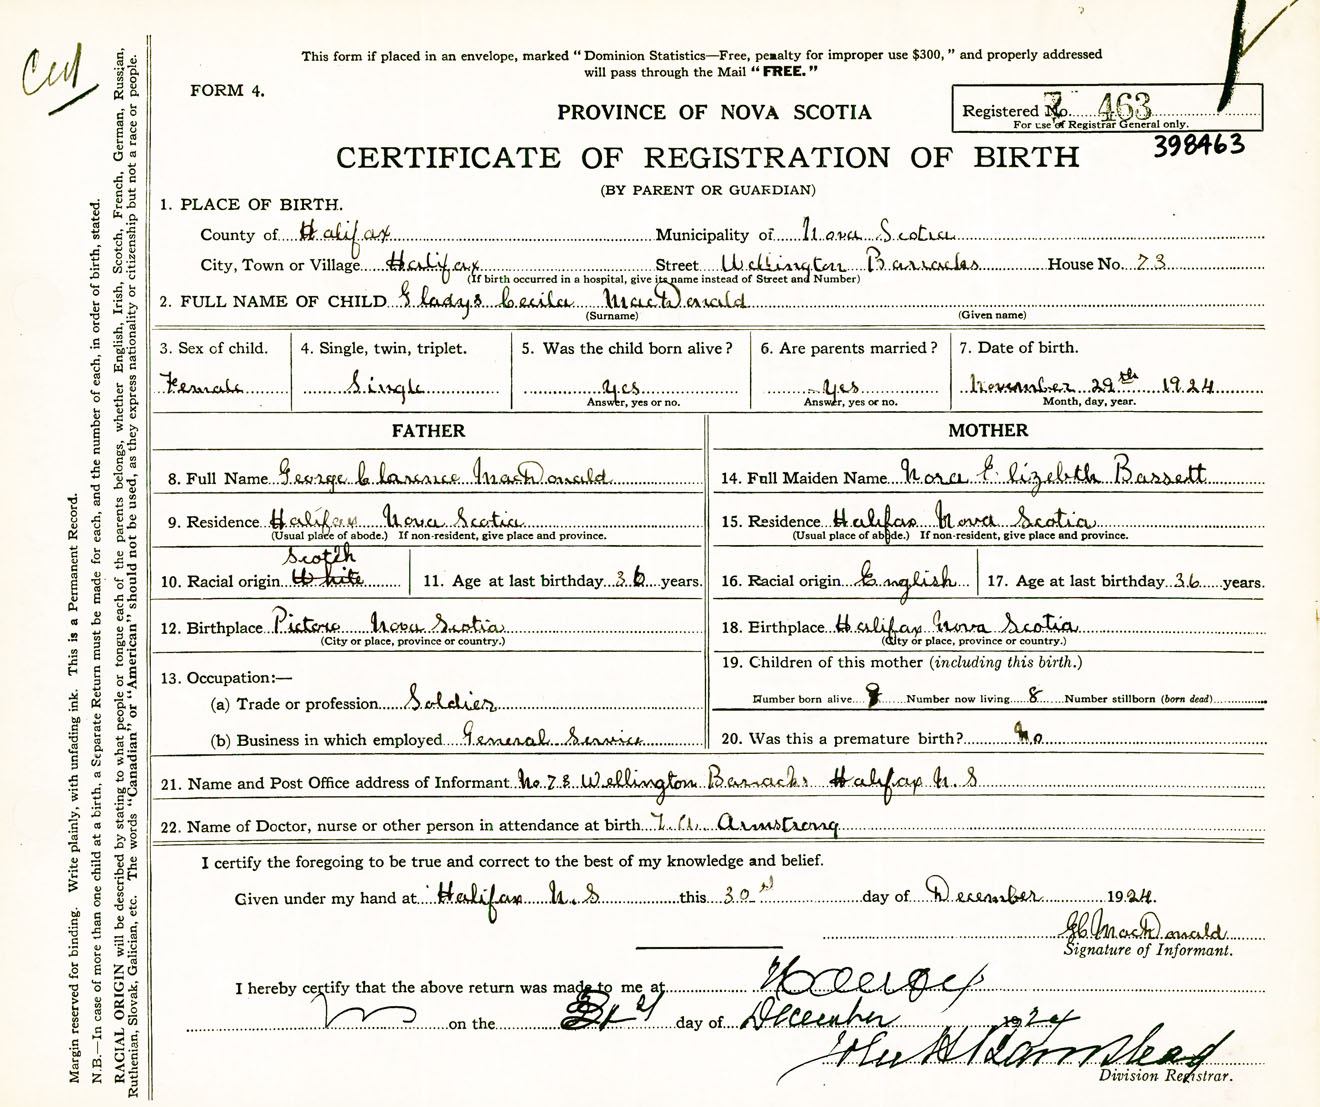 Ced
This form if placed in an envelope, marked "Dominion Statistics—Free, penalty for improper use $300," and properly addressed
will pass through the Mail "FREE."
FORM 4.
PROVINCE OF NOVA SCOTIA
Registered No. 463
For use of Registrar General only.
398463
CERTIFICATE OF REGISTRATION OF BIRTH
(BY PARENT OR GUARDIAN)
1. PLACE OF BIRTH.
County of Halifax Municipality of Nova Scotia
City, Town or Village Halifax Street Wellington Barracks House No. 73
(If birth occurred in a hospital, give its name instead of Street and Number)
2. FULL NAME OF CHILD Gladys Cecila MacDonald
(Surname) (Given name)
3. Sex of child. 4. Single, twin, triplet. 5. Was the child born alive? 6. Are parents married? 7. Date of birth.
Female Single Yes Yes November 29th 1924
Answer, yes or no. Answer, yes or no. Month, day, year.
FATHER MOTHER
8. Full Name George Clarence MacDonald 14. Full Maiden Name Nora Elizebth Bassett
9. Residence Halifax Nova Scotia 15. Residence Halifax Nova Scotia
(Usual place of abode.) If non-resident, give place and province. (Usual place of abode.) If non-resident, give place and province.
Scotch
10. Racial origin White 11. Age at last birthday 36 years. 16. Racial origin English 17. Age at last birthday 36 years.
12. Birthplace Pictou Nova Scotia 18. Birthplace Halifax Nova Scotia
(City or place, province or country.) (City or place, province or country.)
13. Occupation:— 19. Children of this mother (including this birth.)
(a) Trade or profession Soldier Number born alive Number now living 8 Number stillborn (born dead)
(b) Business in which employed General Service 20. Was this a premature birth? No
21. Name and Post Office address of Informant No 73 Wellington Barracks Halifax N.S
22. Name of Doctor, nurse or other person in attendance at birth Armstrong
I certify the foregoing to be true and correct to the best of my knowledge and belief.
Given under my hand at Halifax N.S this 30 day of December 1924.
GC MacDonald
Signature of Informant.
I hereby certify that the above return was made to me at Halifax
on the 31st day of December 1924
John H
Division Registrar.
Margin reserved for binding. Write plainly, with unfading ink. This is a Permanent Record.
N.B.—In case of more than one child at a birth, a Separate Return must be made for each, and the number of each, in order of birth, stated.
RACIAL ORIGIN will be described by stating to what people or tongue each of the parents belongs, whether English, Irish, Scotch, French, German, Russian,
Ruthenian, Slovak, Galician, etc. The words "Canadian" or "American" should not be used, as they express nationality or citizenship but not a race or people.